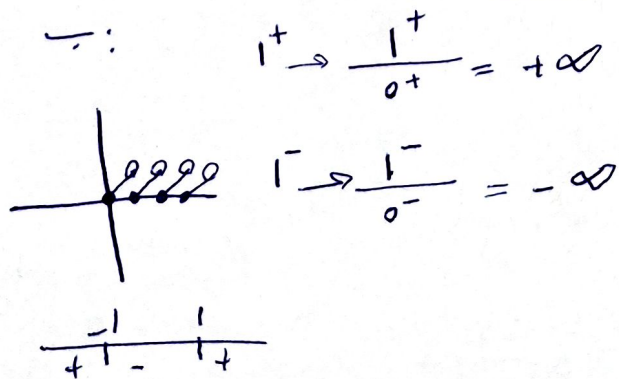 ب:
1⁺ → 1⁺ / 0⁺ = +∞
1⁻ → 1⁻ / 0⁻ = -∞
-1 1
+ - +